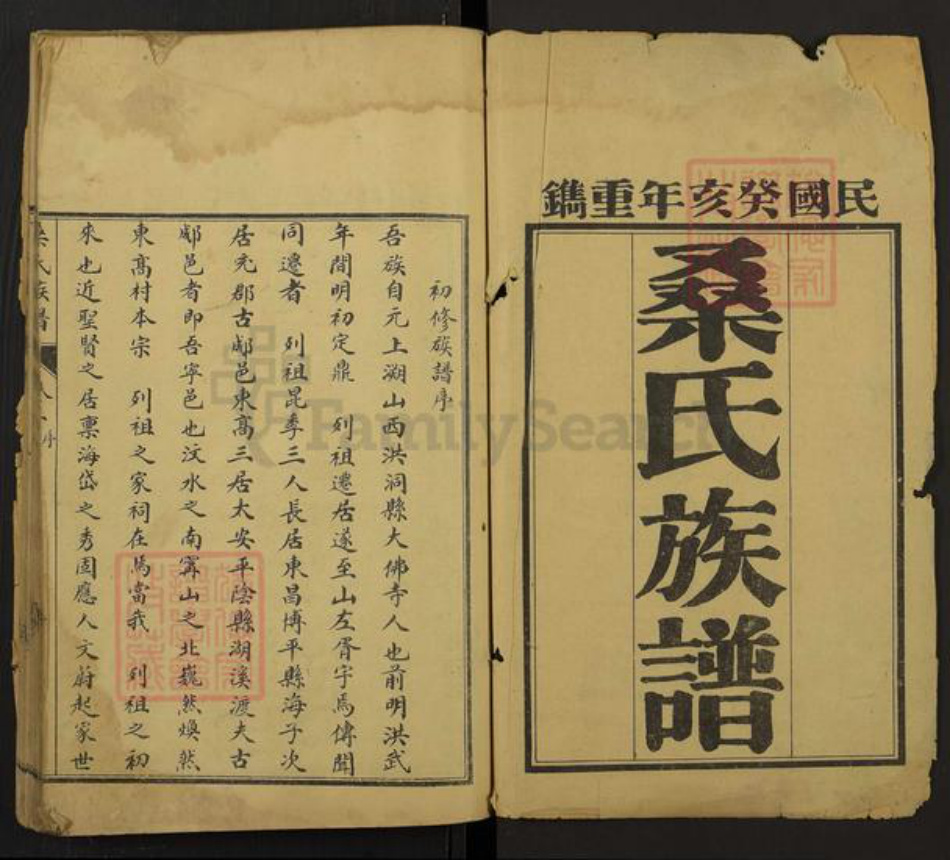 民國癸亥年重鐫
桑氏族譜
初修族譜序
吾族自元上溯山西洪洞縣大佛寺人也前明洪武
年間明初定鼎 列祖遷居遂至山左胥宇焉傳聞
同遷者 列祖昆季三人長居東昌博平縣海子次
居兖郡古郕邑東高三居大安平陰縣湖溪渡夫古
郕邑者即吾寧邑也汶水之南寗山之北巍然煥然
東高村本宗 列祖之家祠在焉當我 列祖之初
來也近聖賢之居禀海岱之秀固應人文蔚起家世
氏族譜
序
FamilySearch